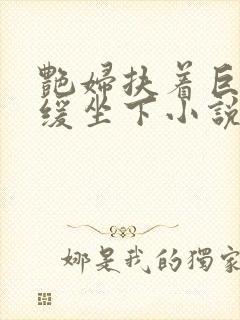 艷婦扶着巨
緩坐下小説
娜是我的獨家